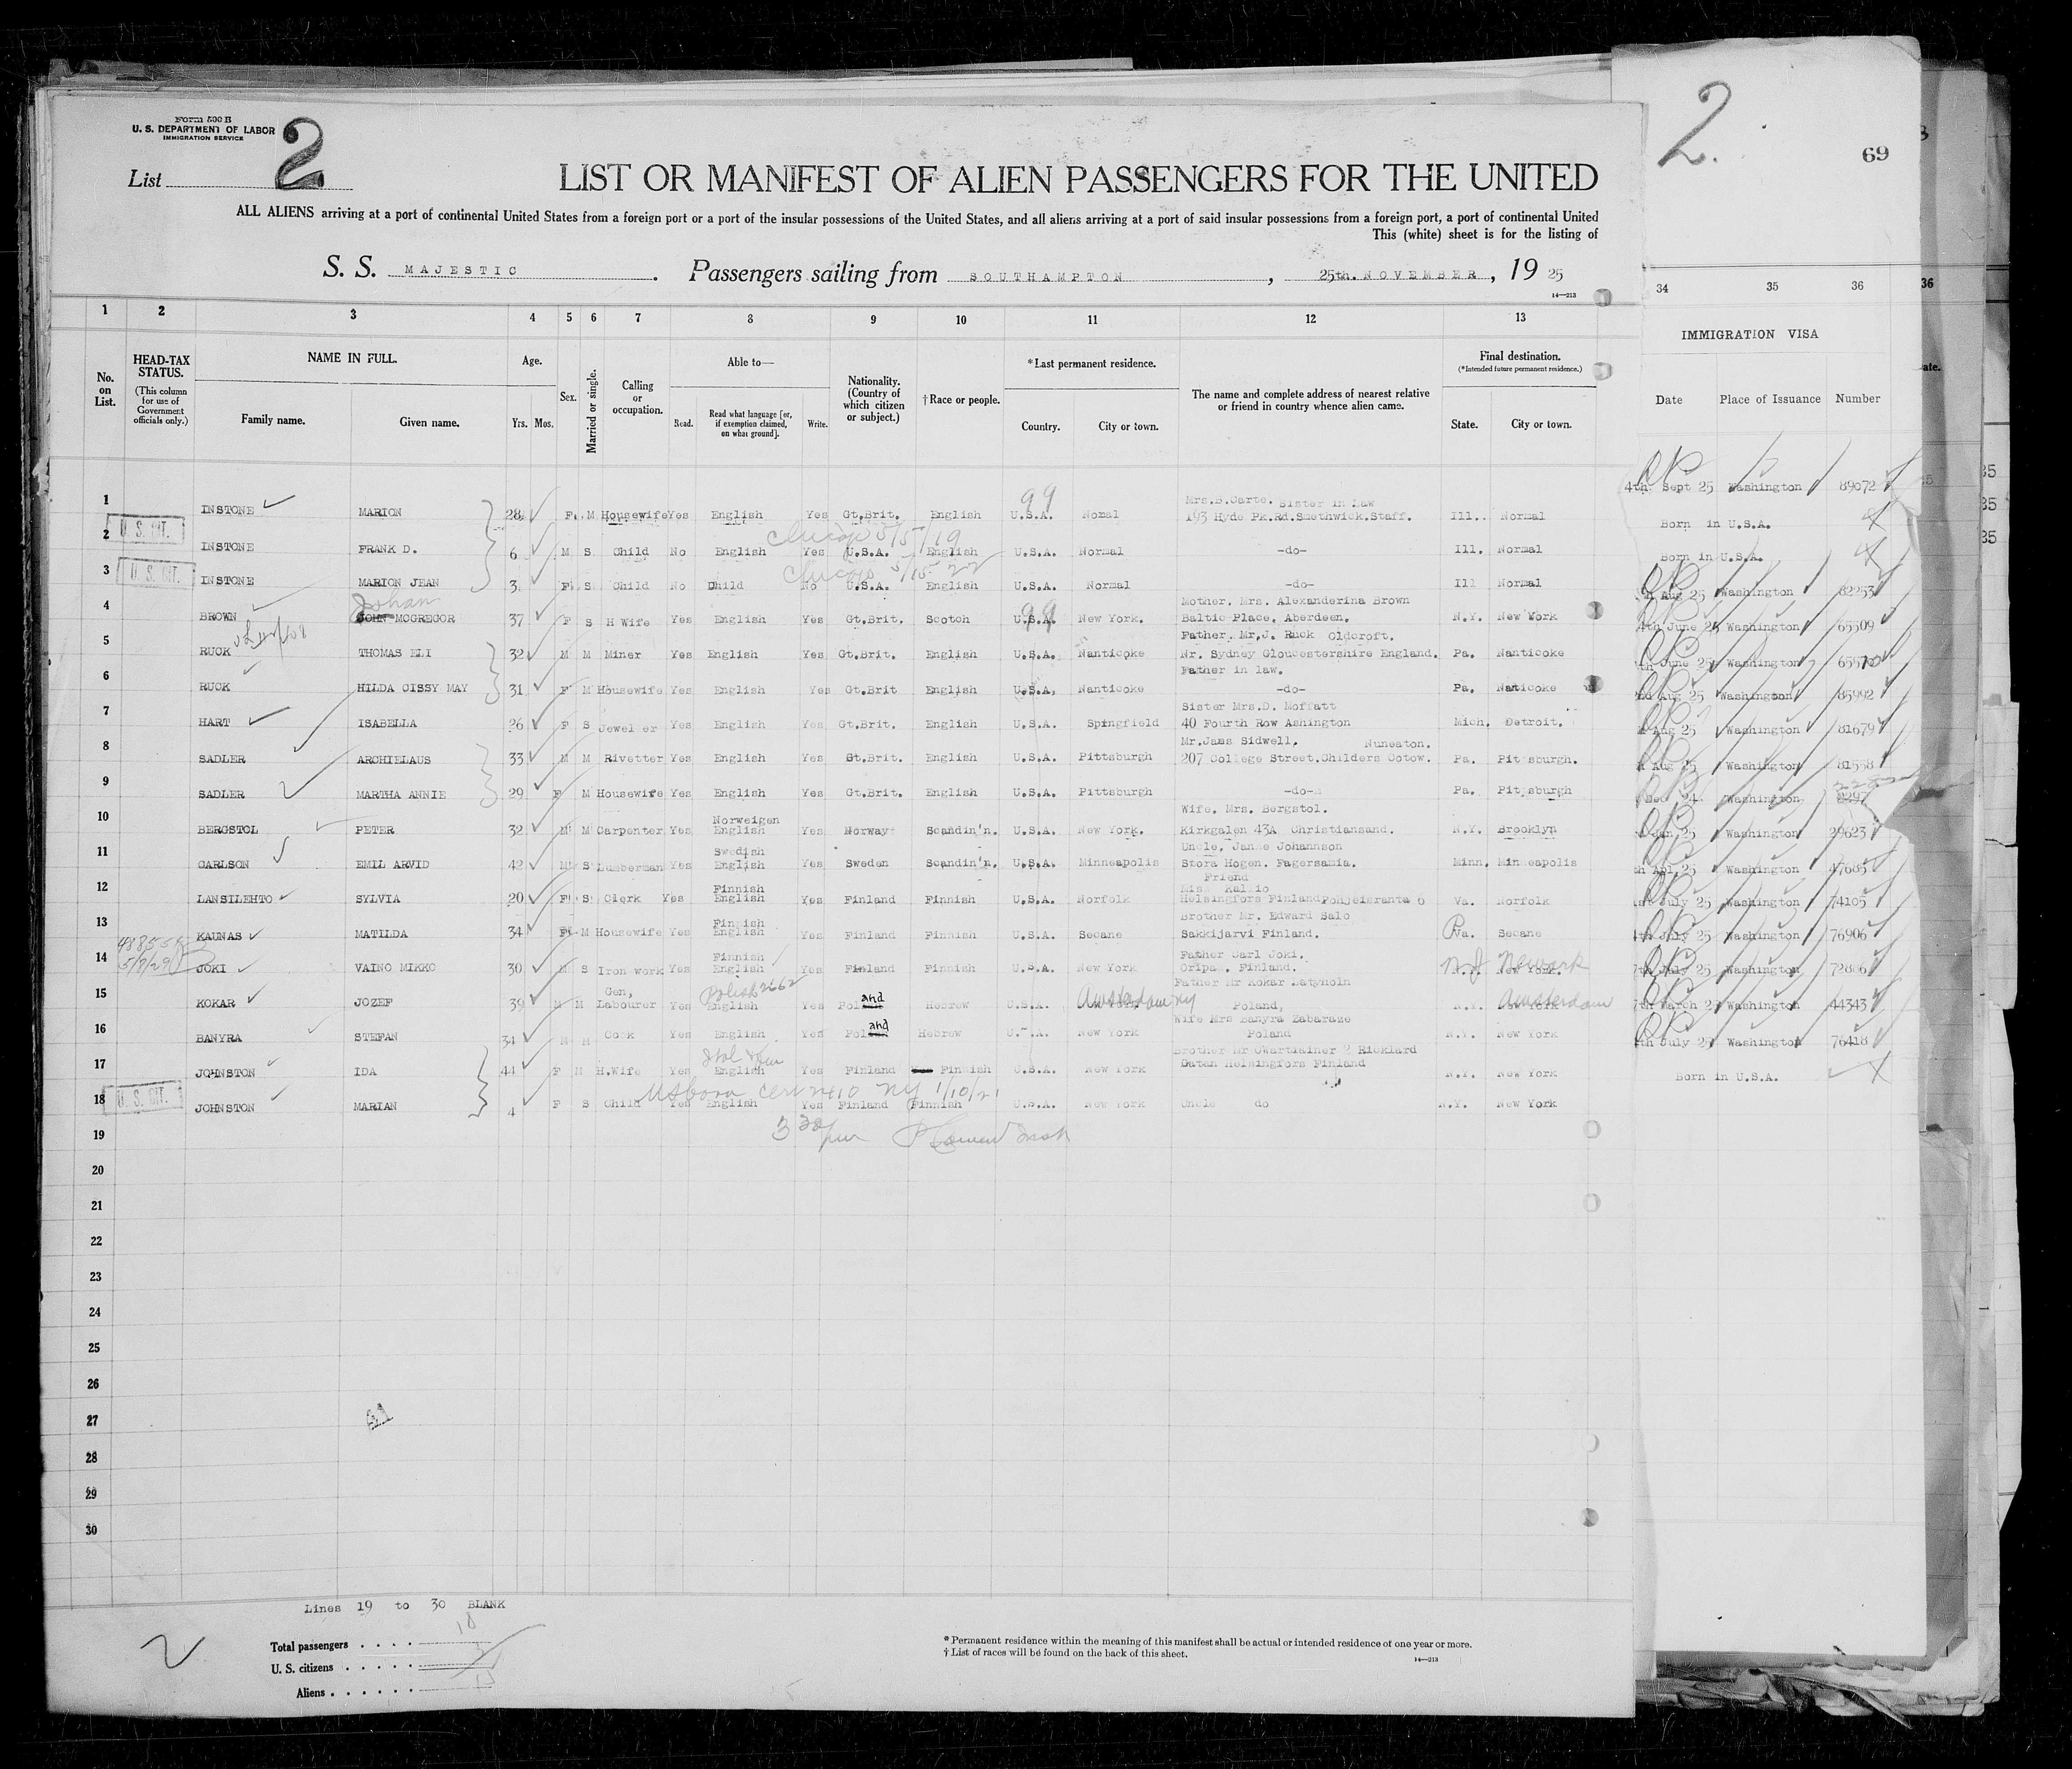 Form 500 B
U. S. DEPARTMENT OF LABOR
IMMIGRATION SERVICE
List 2
2.
69
LIST OR MANIFEST OF ALIEN PASSENGERS FOR THE UNITED
ALL ALIENS arriving at a port of continental United States from a foreign port or a port of the insular possessions of the United States, and all aliens arriving at a port of said insular possessions from a foreign port, a port of continental United
This (white) sheet is for the listing of
S. S. MAJESTIC. Passengers sailing from SOUTHAMPTON, 25th. NOVEMBER, 19 25
14—213
1 2 3 4 5 6 7 8 9 10 11 12 13 34 35 36 36
IMMIGRATION VISA
No. on List.
HEAD-TAX STATUS.
(This column for use of Government officials only.)
NAME IN FULL.
Family name. Given name.
Age.
Yrs. Mos.
Sex.
Married or single.
Calling or occupation.
Able to—
Read. Read what language [or, if exemption claimed, on what ground]. Write.
Nationality. (Country of which citizen or subject.)
†Race or people.
*Last permanent residence.
Country. City or town.
The name and complete address of nearest relative or friend in country whence alien came.
Final destination.
(*Intended future permanent residence.)
State. City or town.
Date Place of Issuance Number
99
Mrs.S.Carte. Sister in Law
1 INSTONE MARION 28 F. M Housewife Yes English Yes Gt.Brit. English U.S.A. Nomal 193 Hyde Pk.Rd.Smethwick.Staff. Ill.. Normal 4th Sept 25 Washington 89072
U. S. CIT.
2 INSTONE FRANK D. 6 M S Child No English Yes U.S.A. English U.S.A. Normal -do- Ill. Normal Born in U.S.A.
U. S. CIT.
3 INSTONE MARION JEAN 3. F. S Child No Child No U.S.A. English U.S.A. Normal -do- Ill Normal Born in U.S.A.
Johan
Mother. Mrs. Alexanderina Brown
4 BROWN JOHN MCGREGOR 37 F S H Wife Yes English Yes Gt.Brit. Scotch U.S.A. 99 New York. Baltic Place, Aberdeen. N.Y. New York Aug 25 Washington 82253
Father, Mr,J. Ruck Oldcroft.
5 RUCK THOMAS ELI 32 M M Miner Yes English Yes Gt.Brit. English U.S.A. Nanticoke Nr. Sydney Gloucestershire England. Pa. Nanticoke 4th June 25 Washington 65509
Father in law.
6 RUCK HILDA CISSY MAY 31 F M Housewife Yes English Yes Gt.Brit English U.S.A, Nanticoke -do- Pa. Nanticoke June 25 Washington 65510
Sister Mrs.D. Moffatt
7 HART ISABELLA 26 F S Jeweller Yes English Yes Gt.Brit. English U.S.A. Spingfield 40 Fourth Row Ashington Mich. Detroit. 2nd Aug 25 Washington 85992
Mr.Jams Sidwell. Nuneaton.
8 SADLER ARCHIELAUS 33 M M Rivetter Yes English Yes Gt.Brit. English U.S.A. Pittsburgh 207 College Street.Childers Cotow. Pa. Pittsburgh. Aug 25 Washington 81679
9 SADLER MARTHA ANNIE 29 F M Housewife Yes English Yes Gt.Brit. English U.S.A. Pittsburgh -do- Pa. Pittsburgh Aug 25 Washington 81558
Norweigen
Wife. Mrs. Bergstol.
10 BERGSTOL PETER 32 M M Carpenter Yes English Yes Norway Scandin'n. U.S.A. New York. Kirkgalen 43A Christiansand. N.Y. Brooklyn 24 Washington 8297
Swedish
Uncle, Janne Johannson
11 CARLSON EMIL ARVID 42 M S Lumberman Yes English Yes Sweden Scandin'n. U.S.A. Minneapolis Stora Hogen. Fagersamia. Minn. Minneapolis Jan, 25 Washington 29623
Friend
Finnish
Miss Kallio
12 LANSILEHTO SYLVIA 20 F S Clerk Yes English Yes Finland Finnish U.S.A. Norfolk Helsingfors Finland Pohjeisranta 6 Va. Norfolk Apl, 25 Washington 47685
Finnish
Brother Mr. Edward Salo
13 KAUNAS MATILDA 34 F M Housewife Yes English Yes Finland Finnish U.S.A. Secane Sakkijarvi Finland. Pa. Secane July 25 Washington 74105
5/8/29
Finnish
Father Carl Joki.
14 JOKI VAINO MIKKO 30 M S Iron work Yes English Yes Finland Finnish U.S.A. New York Oripaa. Finland. N.J Newark New York. July 25 Washington 76906
Gen,
Polish 2662
Father Mr Kokar Latynoln
15 KOKAR JOZEF 39 M M Labourer Yes English Yes Poland Hebrew U.S.A. Amsterdam NY Poland, N.Y. Amsterdam 7th July 25 Washington 72886
Wife Mrs Banyra Zabaraze
16 BANYRA STEFAN 34 M M Cook Yes English Yes Poland Hebrew U.S.A. New York Poland N.Y. New York 7th March 25 Washington 44343
17 JOHNSTON IDA 44 F M H.Wife Yes English Yes Finland Finnish U.S.A. New York Datan Helsingfors Finland N.Y. New York July 25 Washington 76418
U. S. CIT.
18 JOHNSTON MARIAN 4 F S Child Yes English Yes Finland Finnish U.S.A. New York Uncle do N.Y. New York Born in U.S.A.
19
20
21
22
23
24
25
26
27
28
29
30
Lines 19 to 30 BLANK
Total passengers . . . . 18
U. S. citizens . . . . .
Aliens . . . . . .
* Permanent residence within the meaning of this manifest shall be actual or intended residence of one year or more.
† List of races will be found on the back of this sheet.
14—213